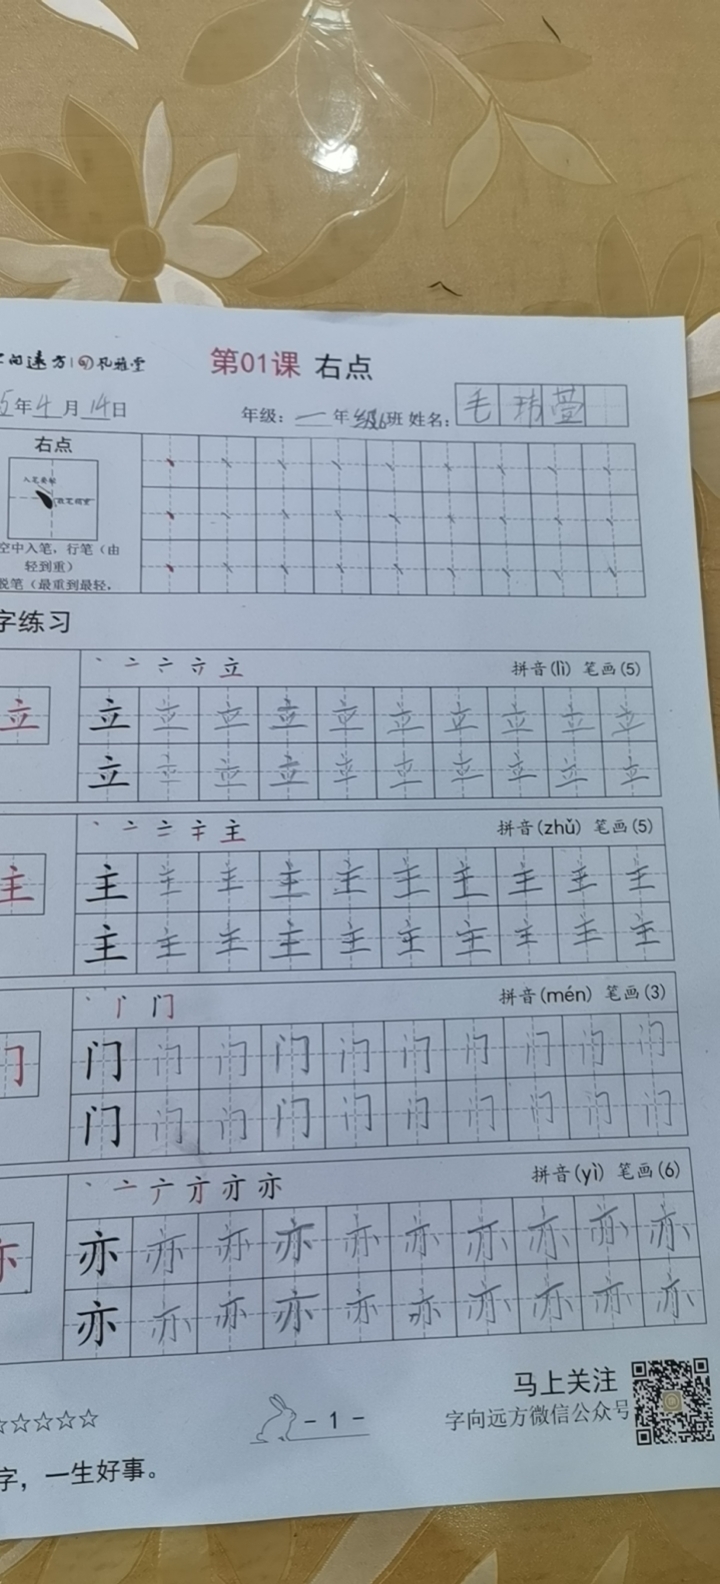 字向远方 孔雅堂
第01课 右点
5年4月14日 年级：一年级6班 姓名：毛玮萱
右点
空中入笔，行笔（由
轻到重）
脱笔（最重到最轻，
字练习
丶 亠 立 拼音(lì) 笔画(5)
立 立 立 立 立 立 立 立 立 立 立
立 立 立 立 立 立 立 立 立 立
丶 亠 主 拼音(zhǔ) 笔画(5)
主 主 主 主 主 主 主 主 主 主 主
主 主 主 主 主 主 主 主 主 主
丶 门 拼音(mén) 笔画(3)
门 门 门 门 门 门 门 门 门 门 门
门 门 门 门 门 门 门 门 门 门
丶 亠 亦 拼音(yì) 笔画(6)
亦 亦 亦 亦 亦 亦 亦 亦 亦 亦 亦
亦 亦 亦 亦 亦 亦 亦 亦 亦 亦
马上关注
☆☆☆☆☆ - 1 - 字向远方微信公众号
字，一生好事。